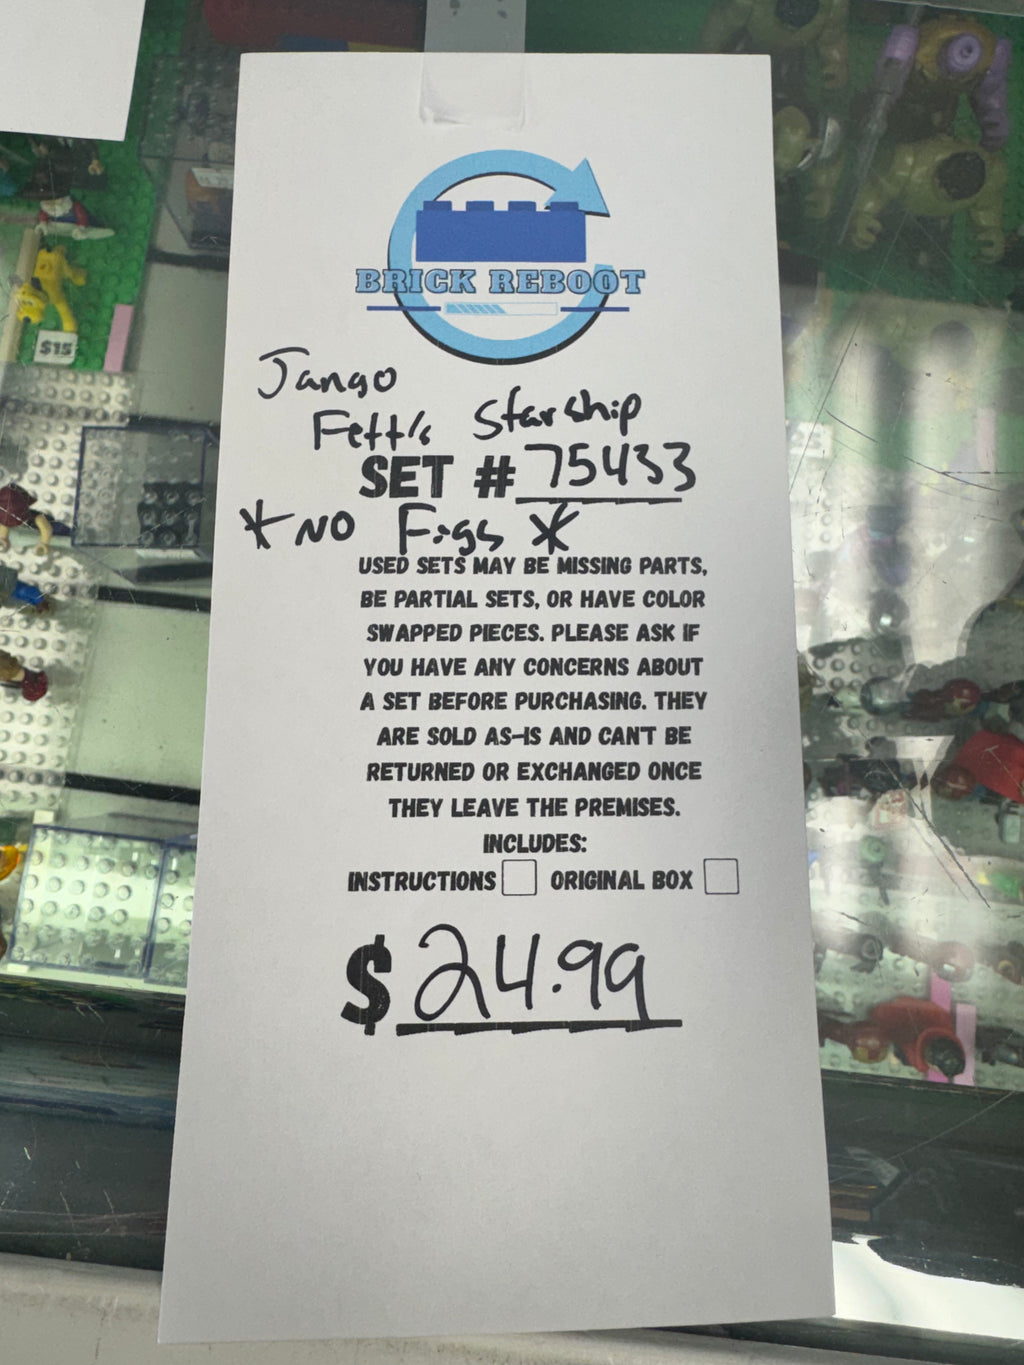 BRICK REBOOT
Jango
Fett's Starship
SET # 75433
*NO Figs*
USED SETS MAY BE MISSING PARTS,
BE PARTIAL SETS, OR HAVE COLOR
SWAPPED PIECES. PLEASE ASK IF
YOU HAVE ANY CONCERNS ABOUT
A SET BEFORE PURCHASING. THEY
ARE SOLD AS-IS AND CAN'T BE
RETURNED OR EXCHANGED ONCE
THEY LEAVE THE PREMISES.
INCLUDES:
INSTRUCTIONS ORIGINAL BOX
$ 24.99
$15